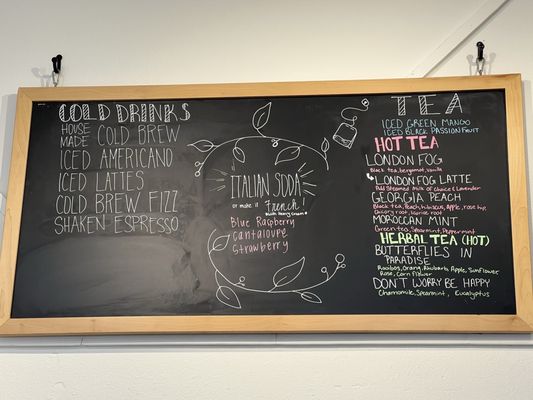 COLD DRINKS
HOUSE MADE COLD BREW
ICED AMERICANO
ICED LATTES
COLD BREW FIZZ
SHAKEN ESPRESSO
"ITALIAN SODA"
or make it French!
Blue Raspberry
Cantaloupe
Strawberry
TEA
ICED GREEN MANGO
ICED BLACK PASSIONFRUIT
HOT TEA
LONDON FOG
Black tea, bergamot, vanilla
LONDON FOG LATTE
Add Steamed Milk of Choice & Lavender
GEORGIA PEACH
Black tea, Peach, hibiscus, Apple, rose hip,
Chicory root, licorice root
MOROCCAN MINT
Green tea, Spearmint, Peppermint
HERBAL TEA (HOT)
BUTTERFLIES IN
PARADISE
Rooibos, Orange, Rhubarb, Apple, Sunflower
Rose, Corn Flower
DON'T WORRY BE HAPPY
Chamomile, Spearmint, Eucalyptus